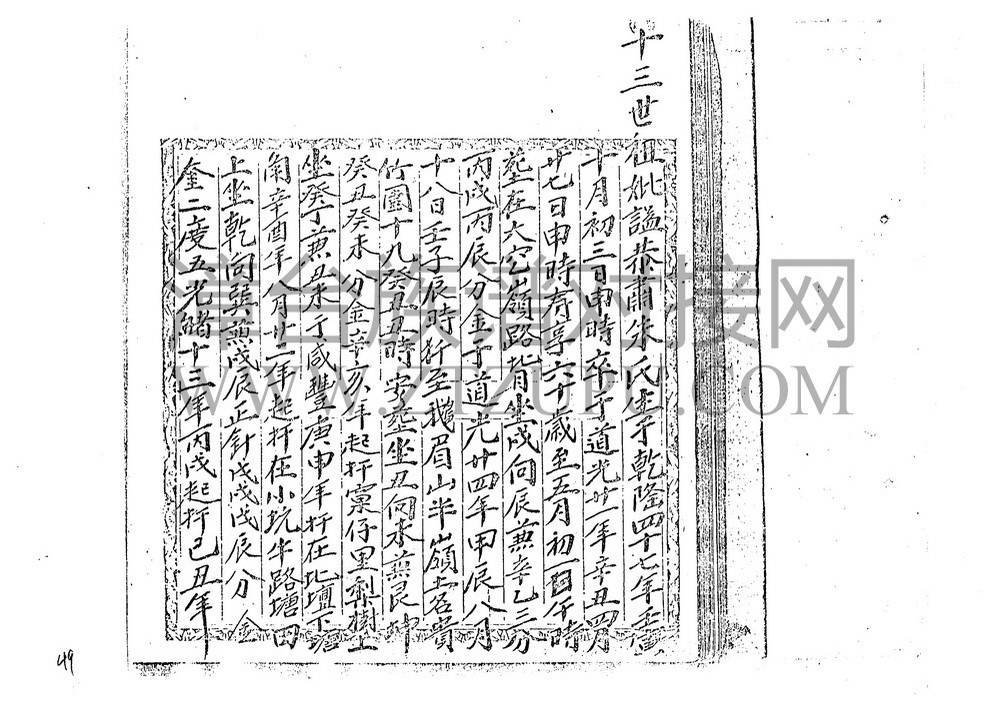 十三世祖妣謚恭肅朱氏生于乾隆四十七年壬寅
十月初三日申時卒于道光廿一年辛丑四月
廿七日申時存享六十歲至五月初一日午時
塟在大空嶺路背坐戌向辰兼辛乙三分
丙戌丙辰分金于道光廿四年甲辰八月
十八日壬子辰時扦至鵝眉山半嶺土名黄
竹園十九癸丑丑時安塟坐丑向未兼艮坤
癸丑癸未分金辛亥年起扦窠仔里梨樹上
坐癸丁兼丑未于咸豐庚申年扦在北壇下塘
角辛酉年八月廿二年起扦在小坑牛路塘田
上坐乾向巽兼戌辰正針戊戌戊辰分金
金二度五光緒十三年丙戌起扦己丑年
49
準合族譜对接网
WWW.ZTZUPU.COM